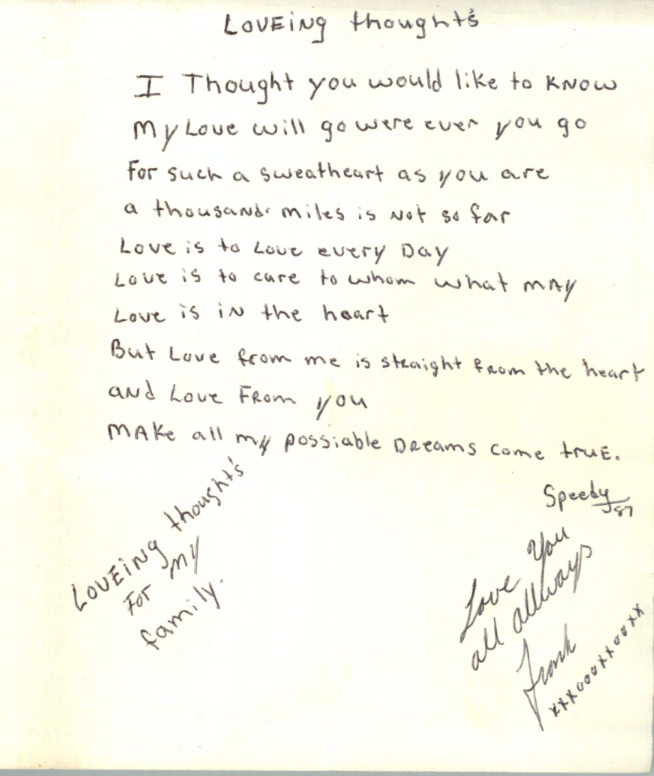 LOVEing thoughts
I Thought you would like to KNOW
My Love will go were ever you go
For such a sweatheart as you are
a thousand miles is not so far
Love is to Love every Day
Love is to care to whom what MAy
Love is iN the heart
But Love from me is straight from the heart
aNd Love From you
MAKe all my possiable Dreams come truE.
Speedy 87
LOVEing thoughts
For My
family.
Love You
all allways
Frank
xxxoooxxooxx